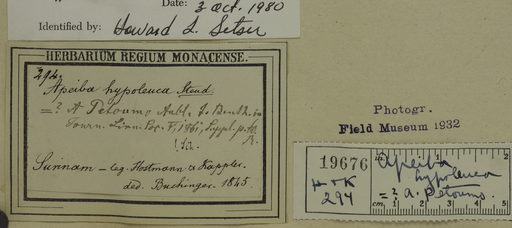 Date: 3 Oct. 1980
Identified by: Howard L. Setser
HERBARIUM REGIUM MONACENSE.
294.
Apeiba hypoleuca Steud.
=? A Petoumo Aubl. f. Benth. in
Journ. Linn. Soc. V, 1861, Suppl. p.
Surinam – leg. Hostmann & Kappler.
ded. Buchinger. 1845.
Photogr.
Field Museum 1932
19676
H & K
294
Apeiba
hypoleuca
=? A. Petoumo.
cm. 1 2 3 4 5
1 2